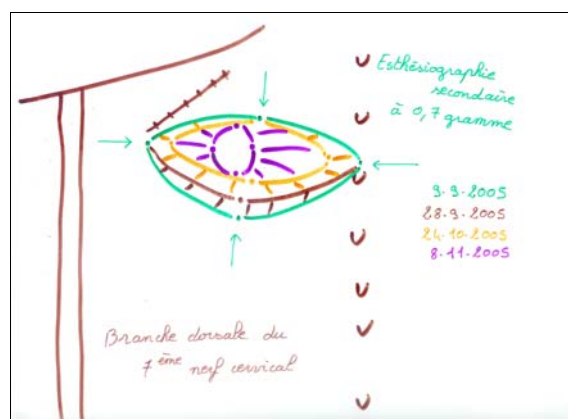 Esthésiographie
secondaire
à 0,7 gramme
9.9.2005
28.9.2005
24.10.2005
8.11.2005
Branche dorsale du
7ème nerf cervical